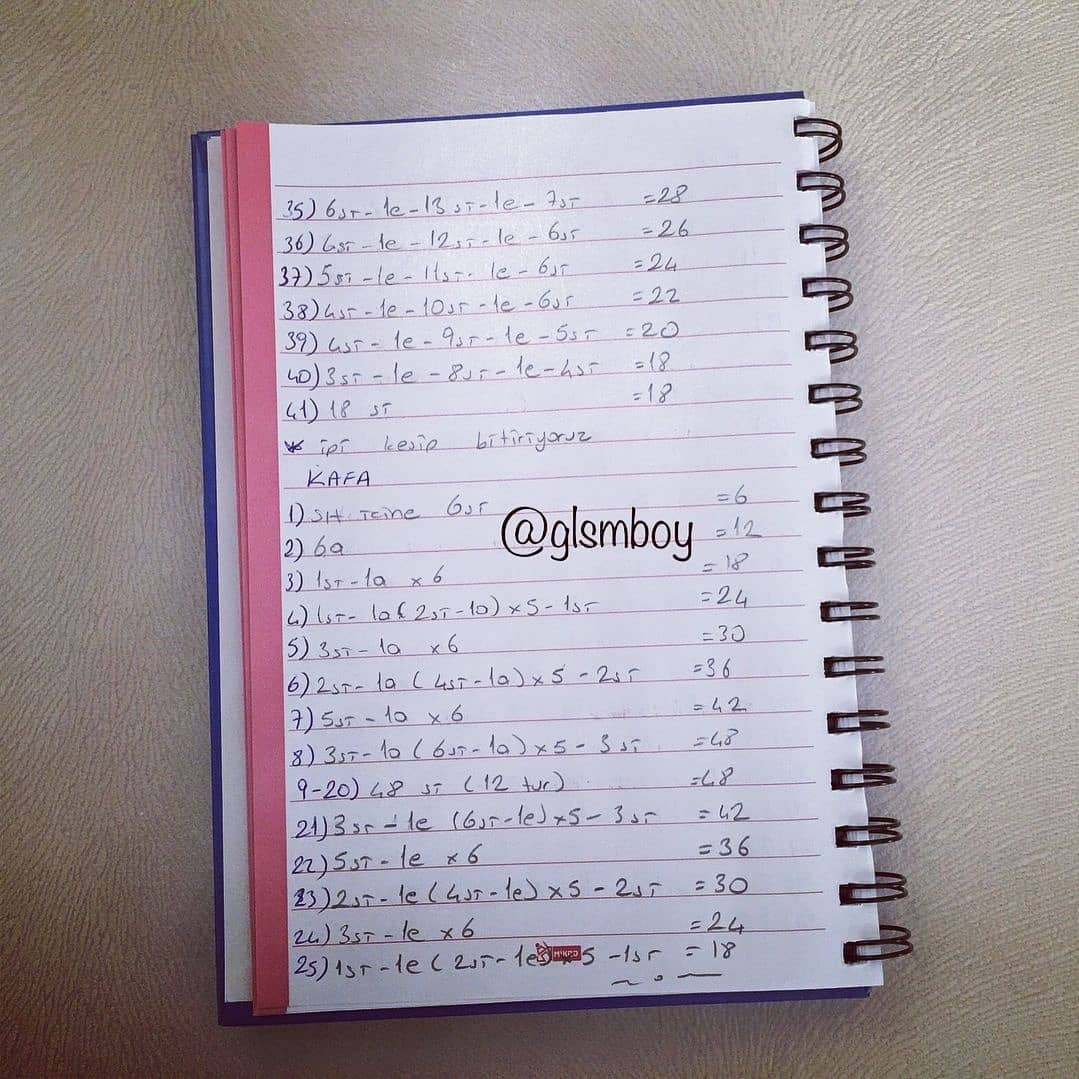 35) 6sт - 1e - 13sт - 1e - 7sт =28
36) 6sт - 1e - 12sт - 1e - 6sт =26
37) 5sт - 1e - 11sт - 1e - 6sт =24
38) 4sт - 1e - 10sт - 1e - 6sт =22
39) 4sт - 1e - 9sт - 1e - 5sт =20
40) 3sт - 1e - 8sт - 1e - 4sт =18
41) 18 sт =18
* ipi kesip bitiriyoruz
KAFA
1) SH icine 6sт =6
@glsmboy
2) 6a =12
3) 1sт - 1a x 6 =18
4) 1sт - 1a ( 2sт - 1a) x 5 - 1sт =24
5) 3sт - 1a x6 =30
6) 2sт - 1a ( 4sт - 1a) x 5 - 2sт =36
7) 5sт - 1a x 6 =42
8) 3sт - 1a ( 6sт - 1a) x 5 - 3 sт =48
9-20) 48 sт (12 tur) =48
21) 3sт - 1e (6sт - 1e) x5 - 3sт =42
22) 5sт - 1e x 6 =36
23) 2sт - 1e (4sт - 1e) x 5 - 2sт =30
24) 3sт - 1e x6 =24
25) 1sт - 1e ( 2sт - 1e) x 5 - 1sт =18
MİKRO